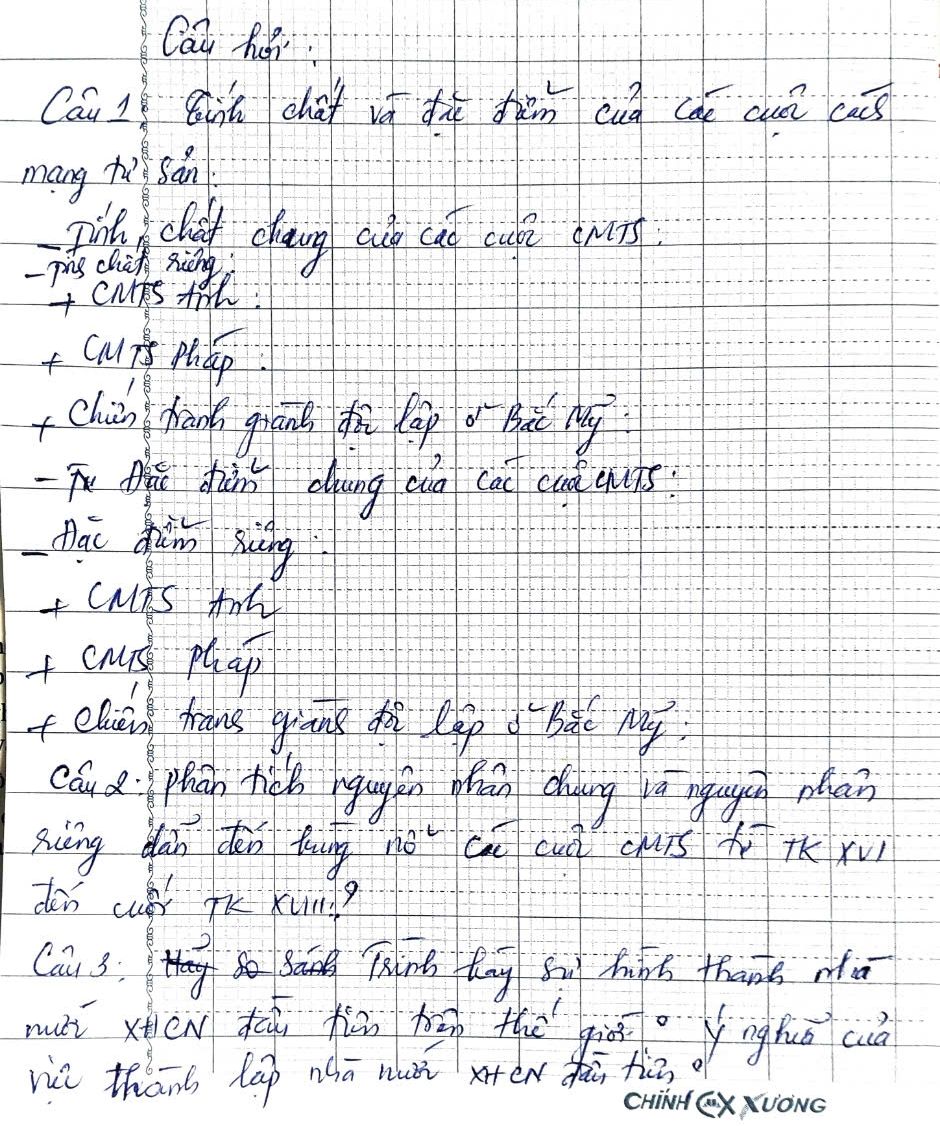 Câu hỏi:
Câu 1: Tính chất và đặc điểm của các cuộc cách
mạng tư sản:
- Tính chất chung của các cuộc CMTS:
- Tính chất riêng:
+ CMTS Anh:
+ CMTS Pháp:
+ Chiến tranh giành độc lập ở Bắc Mỹ:
- Đặc điểm chung của các cuộc CMTS:
- Đặc điểm riêng:
+ CMTS Anh
+ CMTS Pháp
+ Chiến tranh giành độc lập ở Bắc Mỹ:
Câu 2: Phân tích nguyên nhân chung và nguyên nhân
riêng dẫn đến bùng nổ các cuộc CMTS từ TK XVI
đến cuối TK XVIII?
Câu 3: Hãy so sánh Trình bày sự hình thành nhà
nước XHCN đầu tiên trên thế giới? Ý nghĩa của
việc thành lập nhà nước XHCN đầu tiên?
CHÍNH XƯƠNG